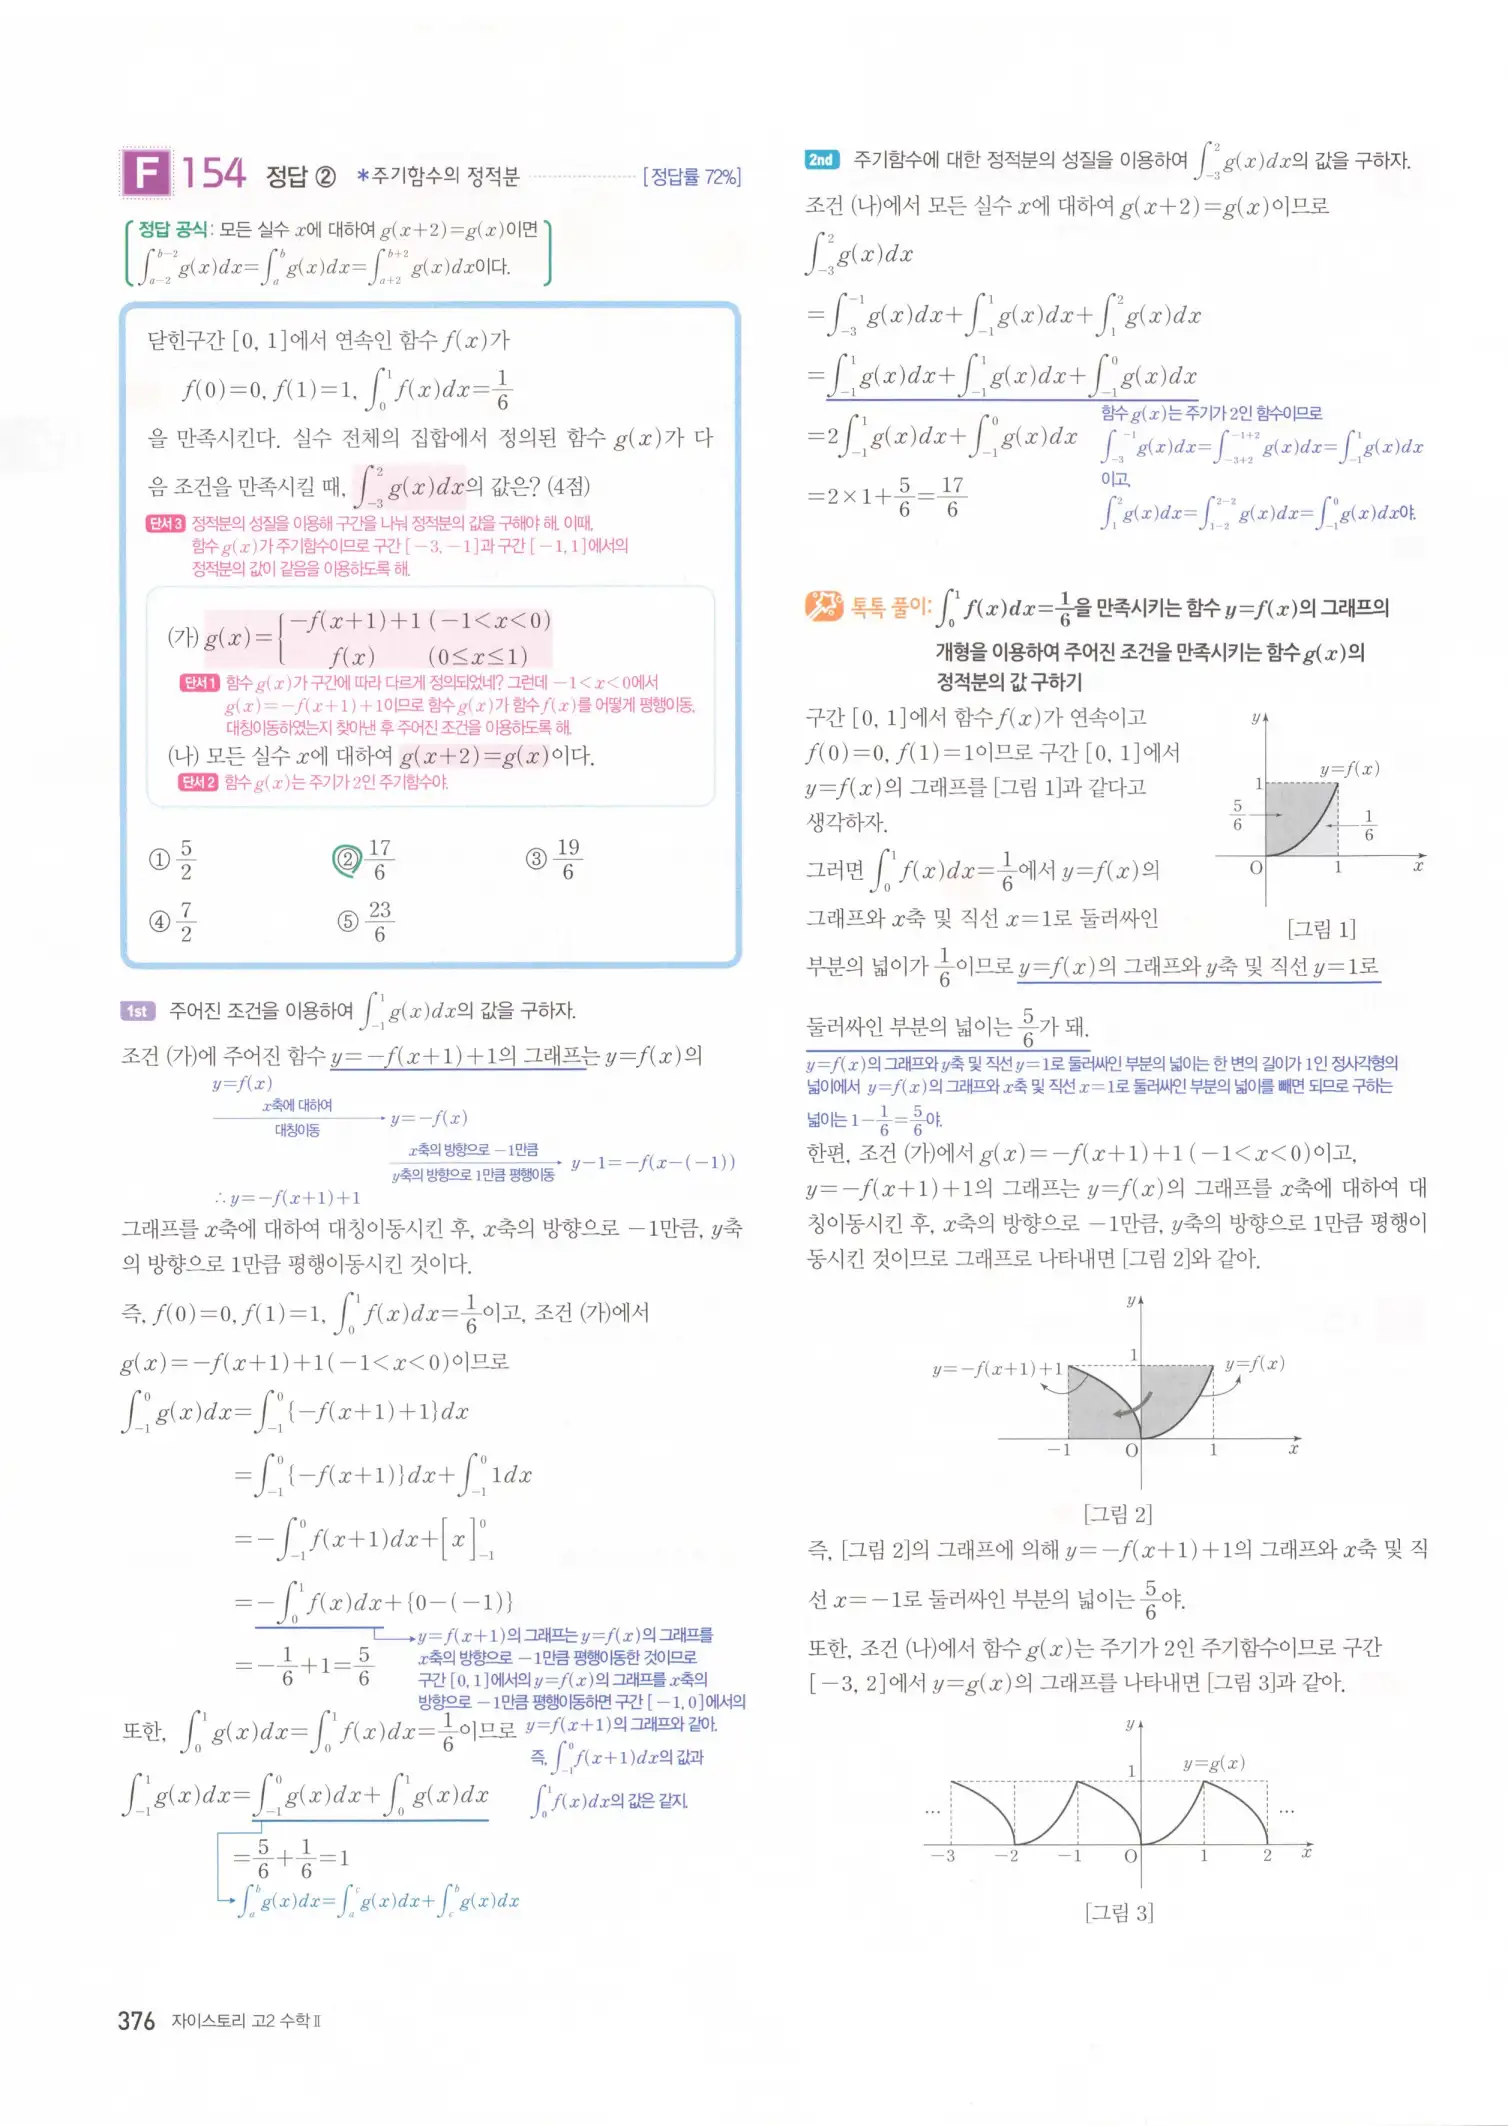 F 154 정답 ② *주기함수의 정적분 [정답률 72%]
정답 공식: 모든 실수 x에 대하여 g(x+2)=g(x)이면
∫_{a-2}^{b-2} g(x)dx=∫_a^b g(x)dx=∫_{a+2}^{b+2} g(x)dx이다.
닫힌구간 [0, 1]에서 연속인 함수 f(x)가
f(0)=0, f(1)=1, ∫_0^1 f(x)dx=1/6
을 만족시킨다. 실수 전체의 집합에서 정의된 함수 g(x)가 다
음 조건을 만족시킬 때, ∫_{-3}^2 g(x)dx의 값은? (4점)
단서3 정적분의 성질을 이용해 구간을 나눠 정적분의 값을 구해야 해. 이때,
함수 g(x)가 주기함수이므로 구간 [-3, -1]과 구간 [-1, 1]에서의
정적분의 값이 같음을 이용하도록 해.
(가) g(x)={ -f(x+1)+1 (-1<x<0)
f(x) (0≤x≤1)
단서1 함수 g(x)가 구간에 따라 다르게 정의되었네? 그런데 -1<x<0에서
g(x)=-f(x+1)+1이므로 함수 g(x)가 함수 f(x)를 어떻게 평행이동,
대칭이동하였는지 찾아낸 후 주어진 조건을 이용하도록 해.
(나) 모든 실수 x에 대하여 g(x+2)=g(x)이다.
단서2 함수 g(x)는 주기가 2인 주기함수야.
① 5/2 ② 17/6 ③ 19/6
④ 7/2 ⑤ 23/6
1st 주어진 조건을 이용하여 ∫_{-1}^1 g(x)dx의 값을 구하자.
조건 (가)에 주어진 함수 y=-f(x+1)+1의 그래프는 y=f(x)의
y=f(x)
x축에 대하여
대칭이동 → y=-f(x)
x축의 방향으로 -1만큼
y축의 방향으로 1만큼 평행이동 → y-1=-f(x-(-1))
∴ y=-f(x+1)+1
그래프를 x축에 대하여 대칭이동시킨 후, x축의 방향으로 -1만큼, y축
의 방향으로 1만큼 평행이동시킨 것이다.
즉, f(0)=0, f(1)=1, ∫_0^1 f(x)dx=1/6이고, 조건 (가)에서
g(x)=-f(x+1)+1(-1<x<0)이므로
∫_{-1}^0 g(x)dx=∫_{-1}^0 {-f(x+1)+1}dx
=∫_{-1}^0 {-f(x+1)}dx+∫_{-1}^0 1dx
=-∫_{-1}^0 f(x+1)dx+[x]_{-1}^0
=-∫_0^1 f(x)dx+{0-(-1)}
=-1/6+1=5/6
→y=f(x+1)의 그래프는 y=f(x)의 그래프를
x축의 방향으로 -1만큼 평행이동한 것이므로
구간 [0, 1]에서의 y=f(x)의 그래프를 x축의
방향으로 -1만큼 평행이동하면 구간 [-1, 0]에서의
y=f(x+1)의 그래프와 같아.
즉, ∫_{-1}^0 f(x+1)dx의 값과
∫_0^1 f(x)dx의 값은 같지.
또한, ∫_0^1 g(x)dx=∫_0^1 f(x)dx=1/6이므로
∫_{-1}^1 g(x)dx=∫_{-1}^0 g(x)dx+∫_0^1 g(x)dx
=5/6+1/6=1
→∫_a^b g(x)dx=∫_a^c g(x)dx+∫_c^b g(x)dx
2nd 주기함수에 대한 정적분의 성질을 이용하여 ∫_{-3}^2 g(x)dx의 값을 구하자.
조건 (나)에서 모든 실수 x에 대하여 g(x+2)=g(x)이므로
∫_{-3}^2 g(x)dx
=∫_{-3}^{-1} g(x)dx+∫_{-1}^1 g(x)dx+∫_1^2 g(x)dx
=∫_{-1}^1 g(x)dx+∫_{-1}^1 g(x)dx+∫_{-1}^0 g(x)dx
=2∫_{-1}^1 g(x)dx+∫_{-1}^0 g(x)dx
=2×1+5/6=17/6
함수 g(x)는 주기가 2인 함수이므로
∫_{-3}^{-1} g(x)dx=∫_{-3+2}^{-1+2} g(x)dx=∫_{-1}^1 g(x)dx
이고,
∫_1^2 g(x)dx=∫_{1-2}^{2-2} g(x)dx=∫_{-1}^0 g(x)dx야.
톡톡 풀이: ∫_0^1 f(x)dx=1/6을 만족시키는 함수 y=f(x)의 그래프의
개형을 이용하여 주어진 조건을 만족시키는 함수 g(x)의
정적분의 값 구하기
구간 [0, 1]에서 함수 f(x)가 연속이고
f(0)=0, f(1)=1이므로 구간 [0, 1]에서
y=f(x)의 그래프를 [그림 1]과 같다고
생각하자.
그러면 ∫_0^1 f(x)dx=1/6에서 y=f(x)의
그래프와 x축 및 직선 x=1로 둘러싸인
y
y=f(x)
1
5/6
1/6
O 1 x
[그림 1]
부분의 넓이가 1/6이므로 y=f(x)의 그래프와 y축 및 직선 y=1로
둘러싸인 부분의 넓이는 5/6가 돼.
y=f(x)의 그래프와 y축 및 직선 y=1로 둘러싸인 부분의 넓이는 한 변의 길이가 1인 정사각형의
넓이에서 y=f(x)의 그래프와 x축 및 직선 x=1로 둘러싸인 부분의 넓이를 빼면 되므로 구하는
넓이는 1-1/6=5/6야.
한편, 조건 (가)에서 g(x)=-f(x+1)+1(-1<x<0)이고,
y=-f(x+1)+1의 그래프는 y=f(x)의 그래프를 x축에 대하여 대
칭이동시킨 후, x축의 방향으로 -1만큼, y축의 방향으로 1만큼 평행이
동시킨 것이므로 그래프로 나타내면 [그림 2]와 같아.
y
1
y=-f(x+1)+1
y=f(x)
-1 O 1 x
[그림 2]
즉, [그림 2]의 그래프에 의해 y=-f(x+1)+1의 그래프와 x축 및 직
선 x=-1로 둘러싸인 부분의 넓이는 5/6야.
또한, 조건 (나)에서 함수 g(x)는 주기가 2인 주기함수이므로 구간
[-3, 2]에서 y=g(x)의 그래프를 나타내면 [그림 3]과 같아.
y
1
y=g(x)
… …
-3 -2 -1 O 1 2 x
[그림 3]
376 자이스토리 고2 수학Ⅱ